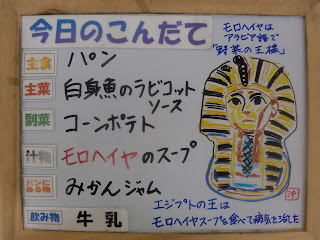 今日のこんだて
主食 パン
主菜 白身魚のラビゴット
ソース
副菜 コーンポテト
汁物 モロヘイヤのスープ
パンにぬる物 みかんジャム
飲み物 牛乳
モロヘイヤは
アラビア語で
「野菜の王様」
エジプトの王は
モロヘイヤスープを食べて病気を治した